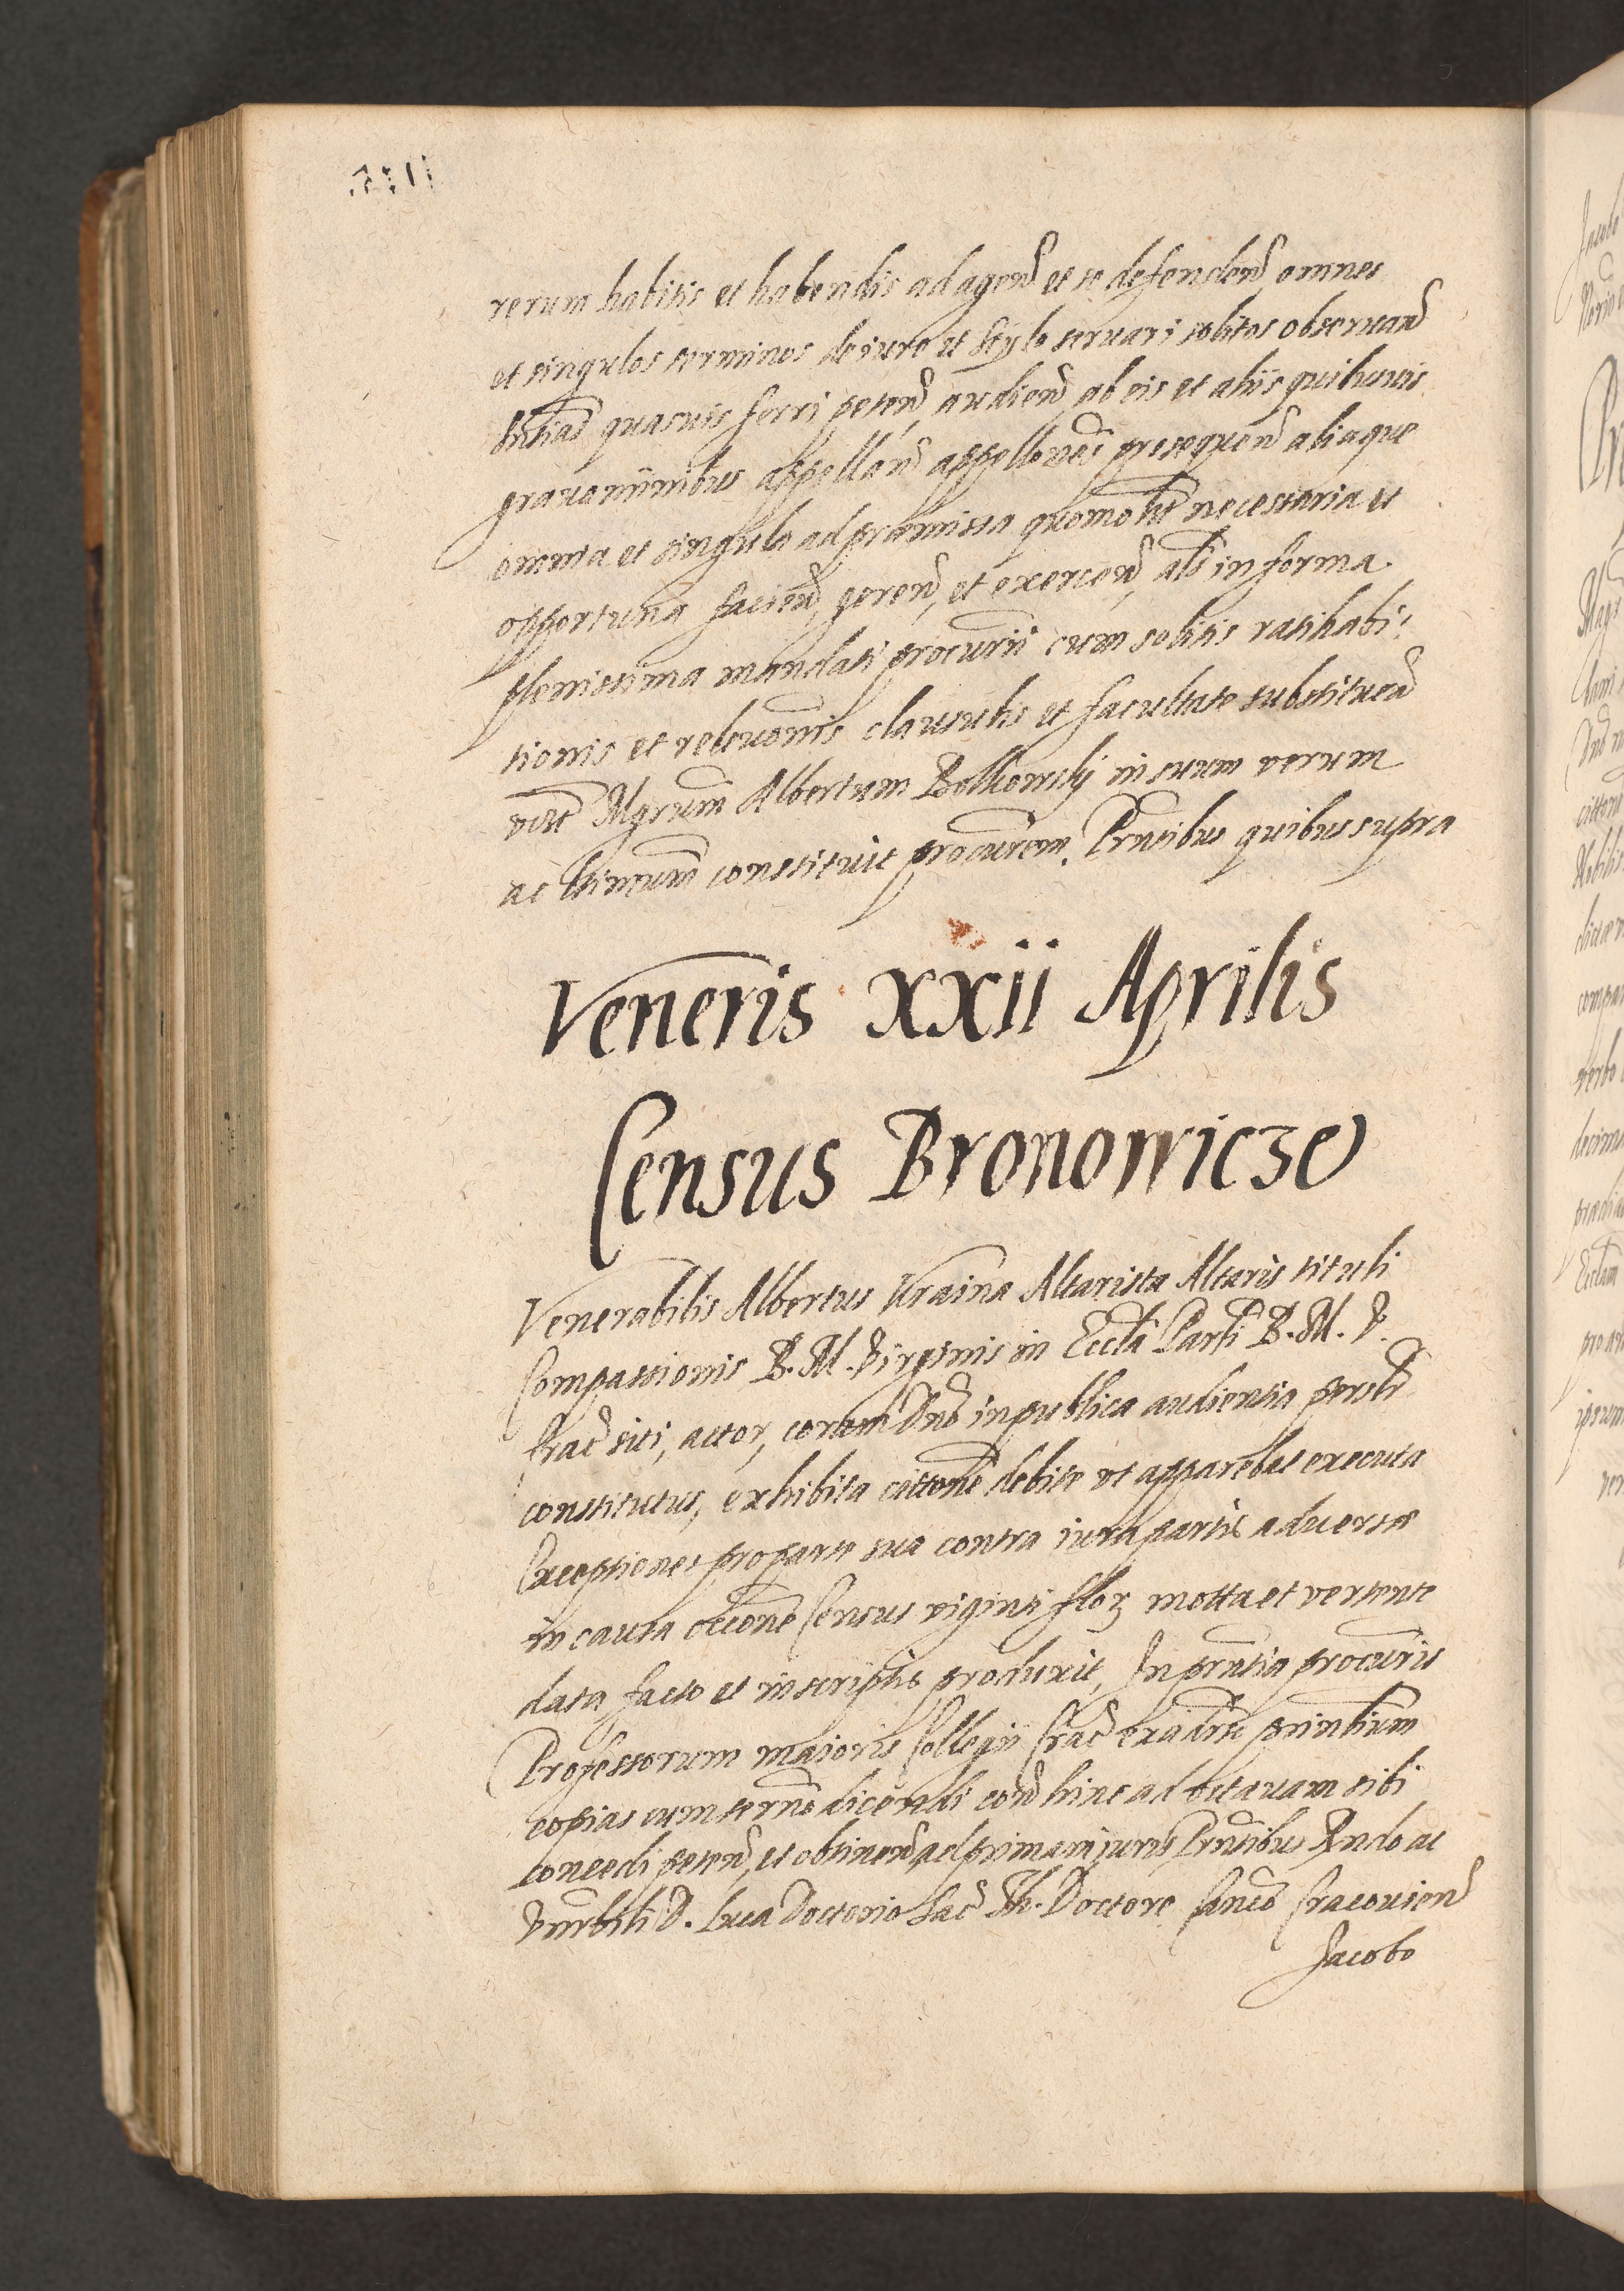 rerum habitis et habendis ad agend et se defendend omnes
et singulos terminos de iure et stylo seruari solitos obseruand
sntias quasuis ferri petend, audiend, ab eis et alijs quibusuis
grauaminibus appelland appellones prosequend aliaque
omnia et singula ad praemissa quomolt necessaria et
opportuna faciend, gerend, et exercend, als in forma
plenissima mandati procurii cum solitis ratihabi
tionis et releuonis clausulis et facultate substituend
Mgrum Albertum Bolkowskij in suum verum
ac ltimum constituit procurem. Prntibus quibus supra
Veneris xxii Aprilis
Census Bronowicze
Venerabilis Albertus Vraina Altarista Altaris tituli
Compassionis B. M. Virginis in Eccla Parli B. M. V.
Crac siti, actor, coram Dno in publica audientia perslr
constitutus, exhibita cittone debite vt apparebat executa
Exceptiones pro parte sua contra iura partis aduersae
in causa occone Census viginti flor motta et vertente
data facto et in scriptis produxit, In prntia procuris
Professorum maioris Collegij Crac
copias cum termo dicendi cond hinc ad octauam sibi
concedi petend, et obtinend ad primam juris Prntibus Rndo ac
Vnrbili D. Luca Doctorio Sac Th. Doctore Canco Cracouien
Jacobo